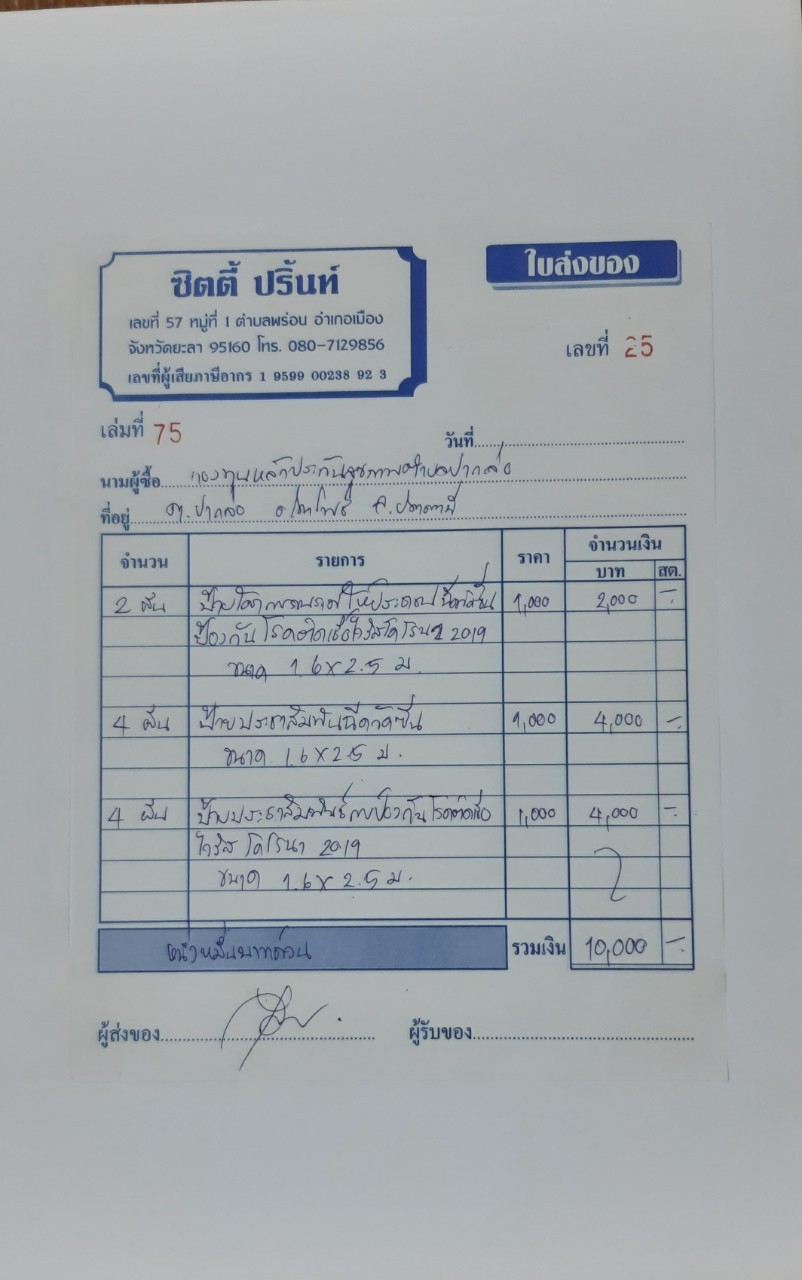 ซิตตี้ ปริ้นท์
เลขที่ 57 หมู่ที่ 1 ตำบลพร่อน อำเภอเมือง
จังหวัดยะลา 95160 โทร. 080-7129856
เลขที่ผู้เสียภาษีอากร 1 9599 00238 92 3
ใบส่งของ
เลขที่ 25
เล่มที่ 75
วันที่
นามผู้ซื้อ กองทุนหลักประกันสุขภาพตำบลปากล่อ
ที่อยู่ ต.ปากล่อ อ.โคกโพธิ์ จ.ปัตตานี
จำนวน รายการ ราคา จำนวนเงิน
บาท สต.
2 ผืน ป้ายโครงการ 1,000 2,000 -
ป้องกันโรคติดเชื้อไวรัสโคโรนา 2019
ขนาด 1.6 x 2.5 ม.
4 ผืน ป้ายประชาสัมพันธ์ฉีดวัคซีน 1,000 4,000 -
ขนาด 1.6 x 2.5 ม.
4 ผืน ป้ายประชาสัมพันธ์การป้องกันโรคติดเชื้อ 1,000 4,000 -
ไวรัสโคโรนา 2019
ขนาด 1.6 x 2.5 ม.
หนึ่งหมื่นบาทถ้วน รวมเงิน 10,000 -
ผู้ส่งของ ผู้รับของ